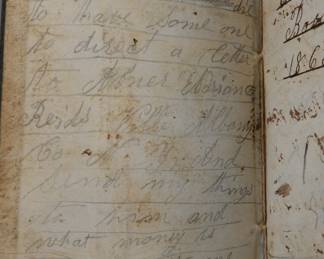 to have some one
to direct a letter
to Abner
Reids Albany
Co N. Y. and
send my things
to him and
what money is
186